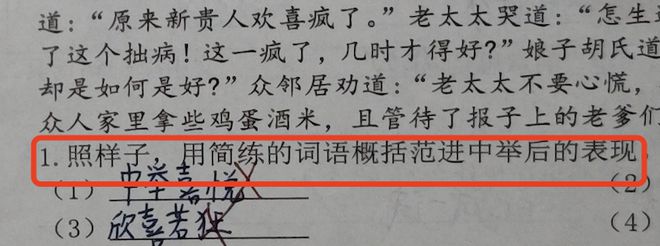 道：“原来新贵人欢喜疯了。”老太太哭道：“怎生
了这个拙病！这一疯了，几时才得好？”娘子胡氏道
却是如何是好？”众邻居劝道：“老太太不要心慌，
众人家里拿些鸡蛋酒米，且管待了报子上的老爹们
1. 照样子，用简练的词语概括范进中举后的表现。
（1）中举喜悦 （2）
（3）欣喜若狂 （4）